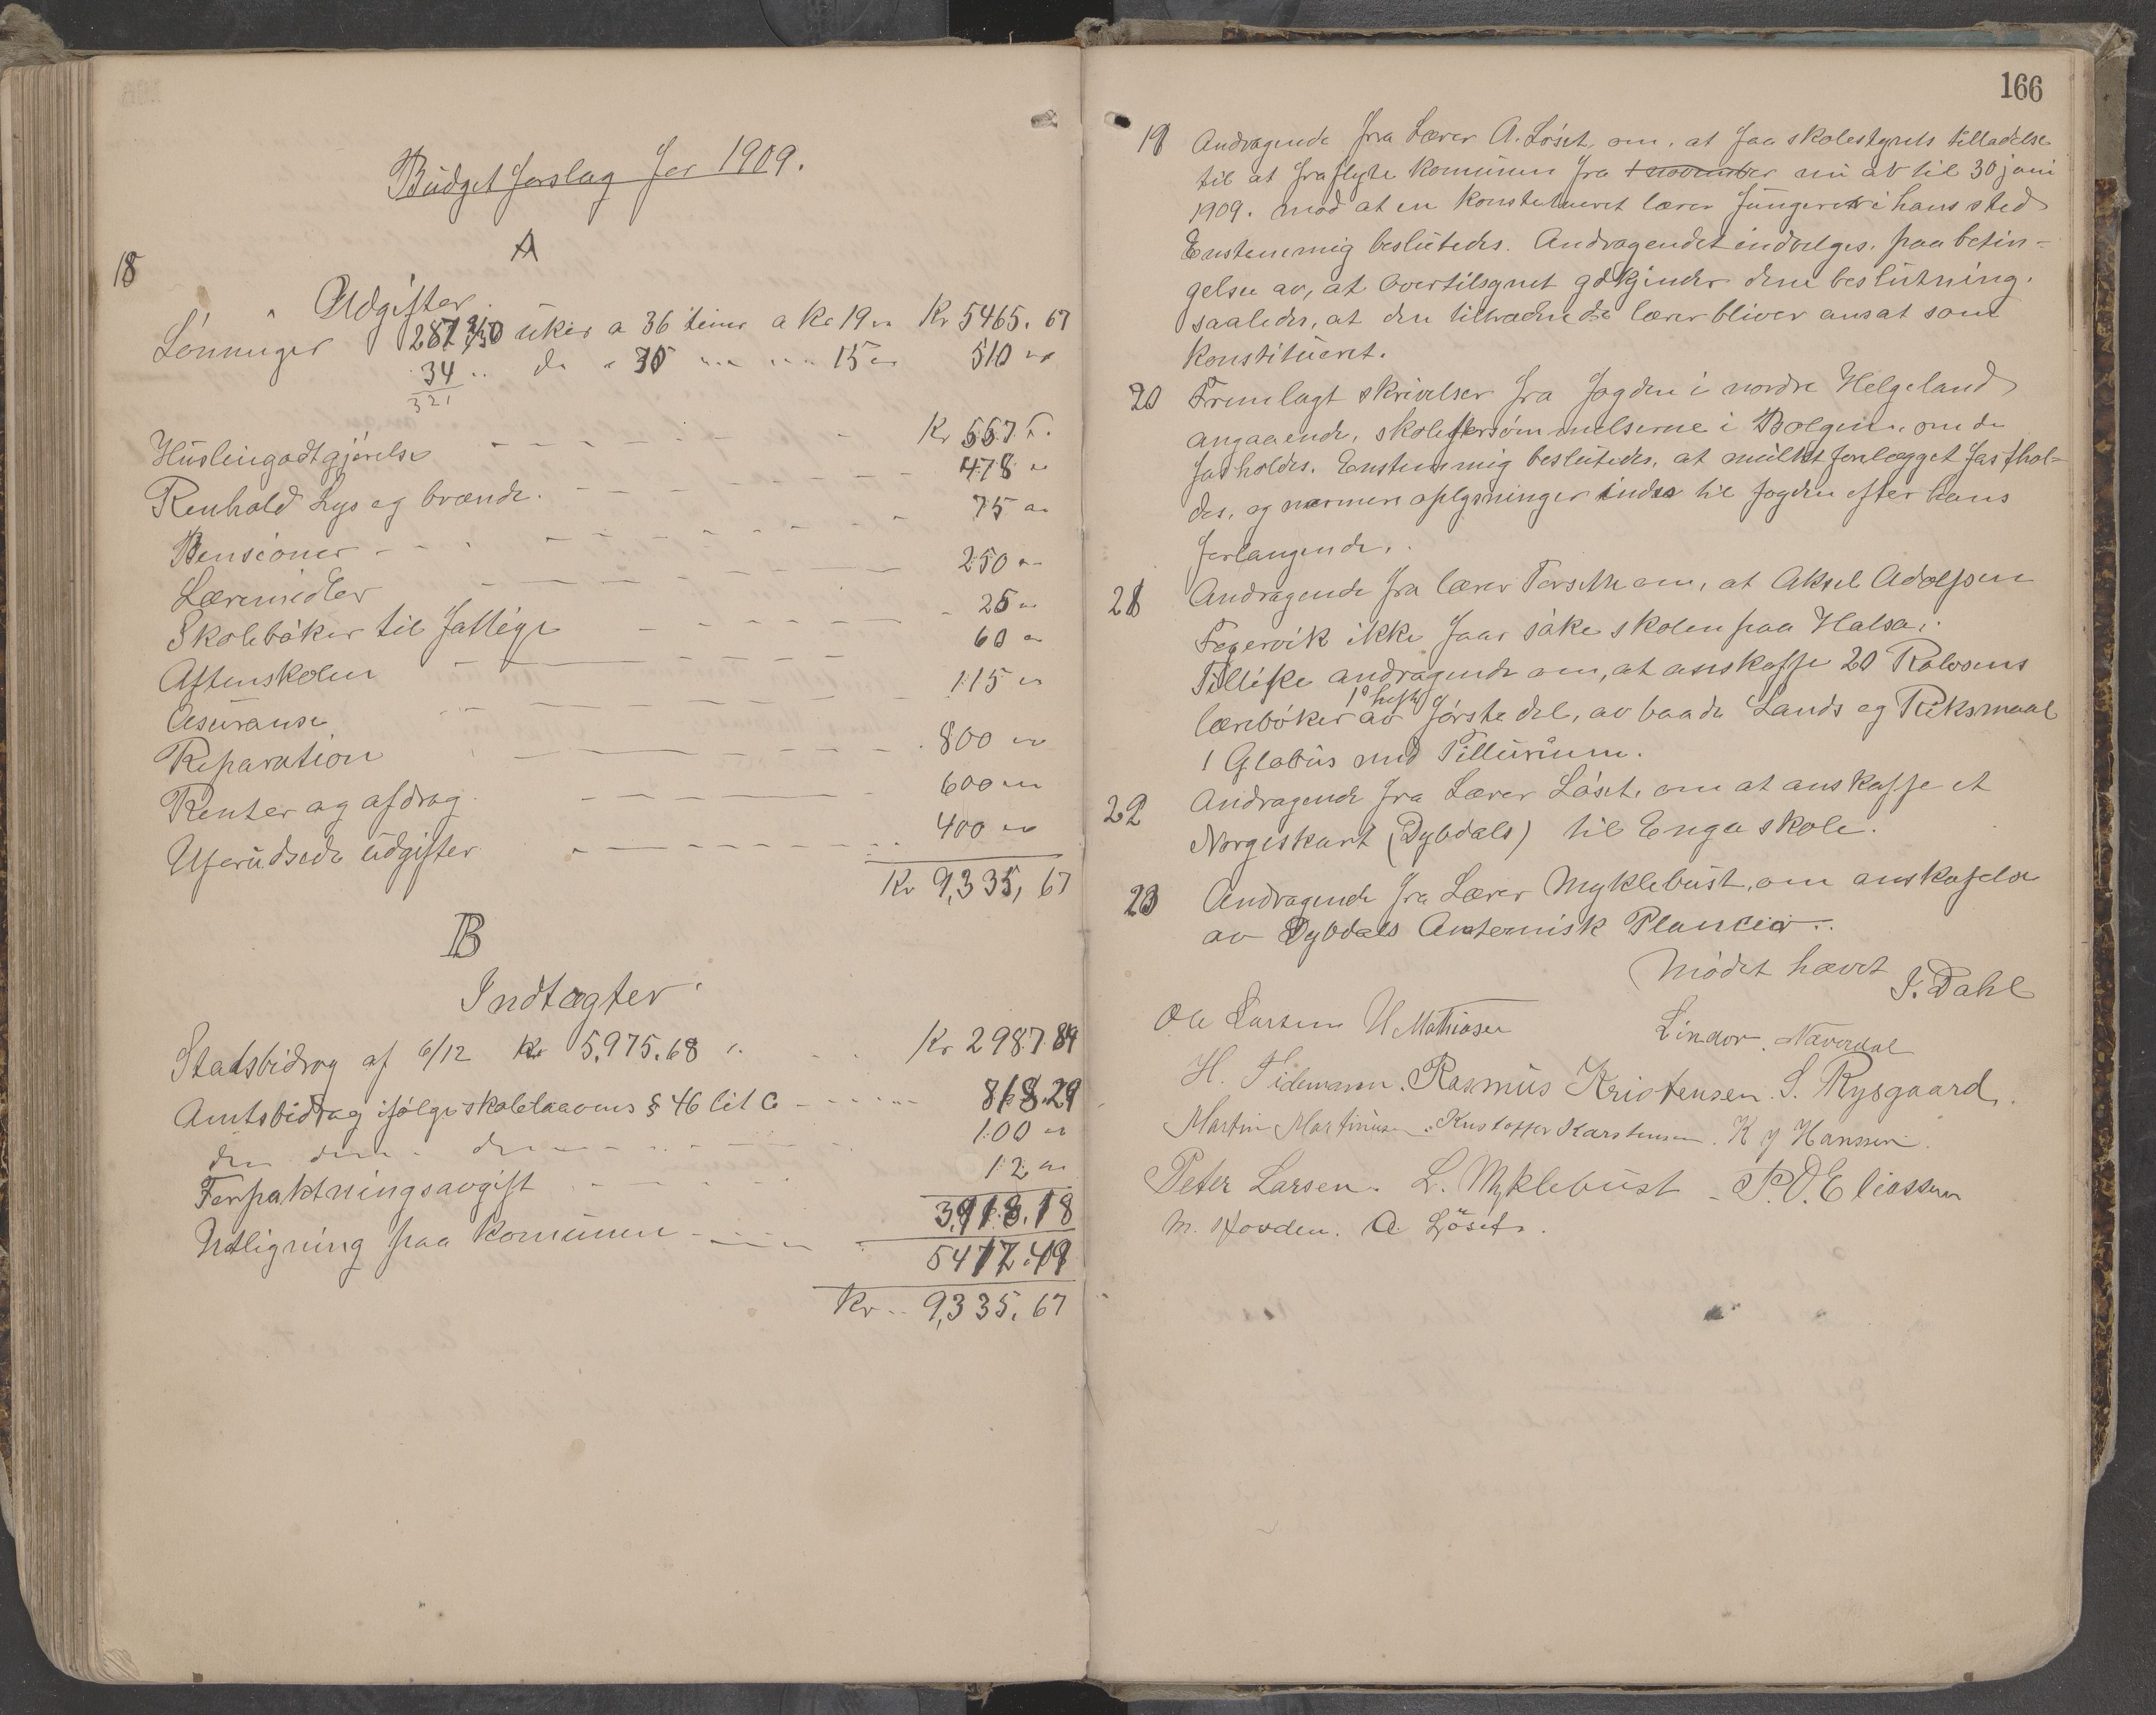 Budgetforslag for 1909.
A
18
Udgifter.
Lönninger 287 2/30 uker a 36 timer a Kr 19 " Kr 5465.67
34 " do " 30 " " " 15 " 510 "
321
Kr
Husleiegodtgjörelse 478 "
Renhold Lys og brænde 75 "
Pensioner 250 "
Læremidler 25 "
Skoleböker til fattige 60 "
Aftenskolen 115 "
Asuranse
Reparation 800 "
Renter og afdrag 600 "
Uforudsede udgifter 400 "
Kr 9,335,67
B
Indtægter
Statsbidrag af 6/12 Kr 5,975.68 Kr 2987.84
Amtsbidrag ifölge skolelaavens § 46 lit C 818.29
100 "
Forpaktningsavgift 12 "
3,918.18
Utligning paa komunen 5417.49
Kr 9,335.67
166
19 Andragende fra Lærer A. Löset, om, at faa skolestyrets tilladelse
til at fraflytte komunen fra 1 november nu av til 30 juni
1909. mod at en konstitueret lærer fungerer i hans sted
Enstemmig beslutedes. Andragendet indvilges, paa betin-
gelse av, at Overtilsynet godkjender denne beslutning.
saaledes, at den tiltrædende lærer bliver ansat som
Konstitueret.
20 Fremlagt skrivelser fra fogden i nordre Helgeland
angaaende, skoleforsömmelserne i Bolgen, om de
fastholdes. Enstemmig beslutedes, at mulktforelægget fasthol-
des, og nærmere oplysninger sendes til fogden efter hans
forlangende.
21 Andragende fra lærer Forseth om, at Aksel Adolfsen
Fagervik ikke faar söke skolen paa Halsa.
Tillike andragende om, at anskaffe 20 Rolvsens
lærebøker av förste del, av baade Lands og Riksmaal
10 hefter
1 Globus med Tellurium.
22 Andragende fra Lærer Löset, om at anskaffe et
Norgeskart (Dybdals) til Enga skole.
23 Andragende fra Lærer Myklebust, om anskafelse
av Dybdals Antomisk Plancier.
Mödet hævet
J. Dahl
Ole Larsen H Mathiasen Lindor Næverdal
H. Tidemann. Rasmus Kristensen. S. Rysgaard.
Martin Martinusen. Kristoffer Karstensen. K J Hanssen.
Peter Larsen. L. Myklebust P. O. Eliassen
M. Hovden. A Löset.